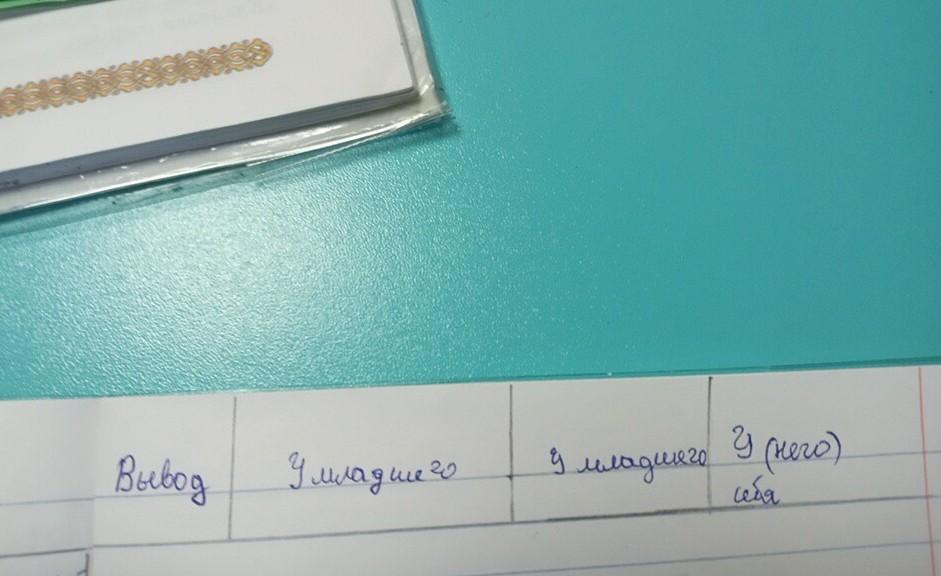 Вывод У младшего У младшего У (него)
себя